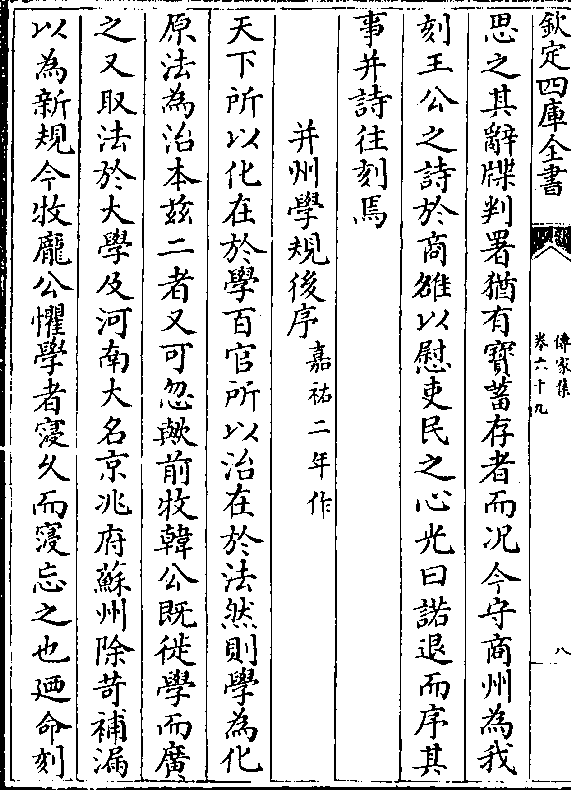 欽定四庫全書
傳家集
卷六十九
八
思之其辭牒判署猶有寶蓄存者而况今守商州為我
刻王公之詩於商雒以慰吏民之心光曰諾退而序其
事并詩往刻焉
并州學規後序嘉祐二年作
天下所以化在於學百官所以治在於法然則學為化
原法為治本兹二者又可忽歟前牧韓公既徙學而廣
之又取法於大學及河南大名京兆府蘇州除苛補漏
以為新規今牧龎公懼學者寖久而寖忘之也廼命刻